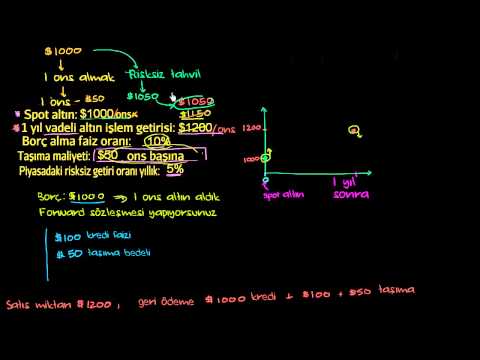 $1000
1 ons almak Risksiz tahvil
1 ons - $50 $1050 $1050
Spot altın: $1000/ons $1150
* 1 yıl vadeli altın işlem getirisi: $1200/ons
Borç alma faiz oranı: 10%
Taşıma maliyeti: $50 ons başına
Piyasadaki risksiz getiri oranı yıllık: 5%
Borç: $1000 ⇒ 1 ons altın aldık
Forward sözleşmesi yapıyorsunuz
$100 kredi faizi
$50 taşıma bedeli
1200
1000
0
spot altın 1 yıl
sonra
Satış miktarı $1200, geri ödeme $1000 kredi + $100 + $50 taşıma